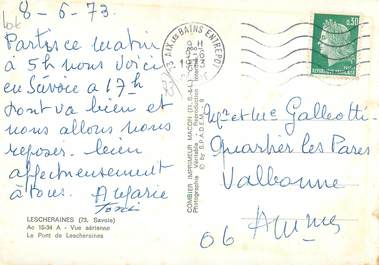 8-6-73.
Partis ce matin
à 5h nous voici
en Savoie à 17h
tout va bien et
nous allons nous
reposer. bien
affectueusement
à tous. A Marie
LESCHERAINES (73. Savoie)
Ac 15-34 A - Vue aérienne
Le Pont de Lescheraines
COMBIER IMPRIMEUR MACON (71. S.-&-L.)
Photographie Véritable - Reproduction Interdite
© by S.P.A.D.E.M.
73 AIX les BAINS ENTREPOT
9 H
1973
0,30
REPUBLIQUE FRANÇAISE
Mr et Me Galleotti
Quartier les Pares
Valbonne
06